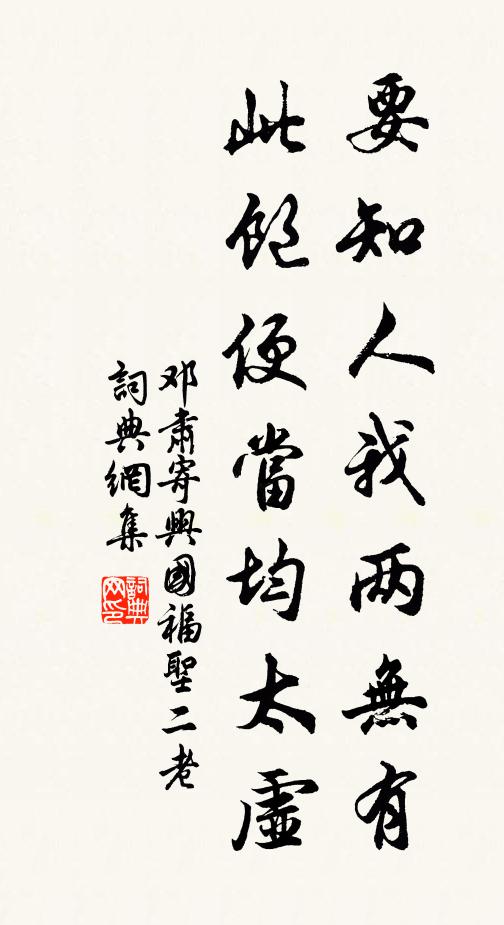 要知人我两無有
此飽便當均太虛
邓肅寄興國福聖二老
詞典網集
詞典網印